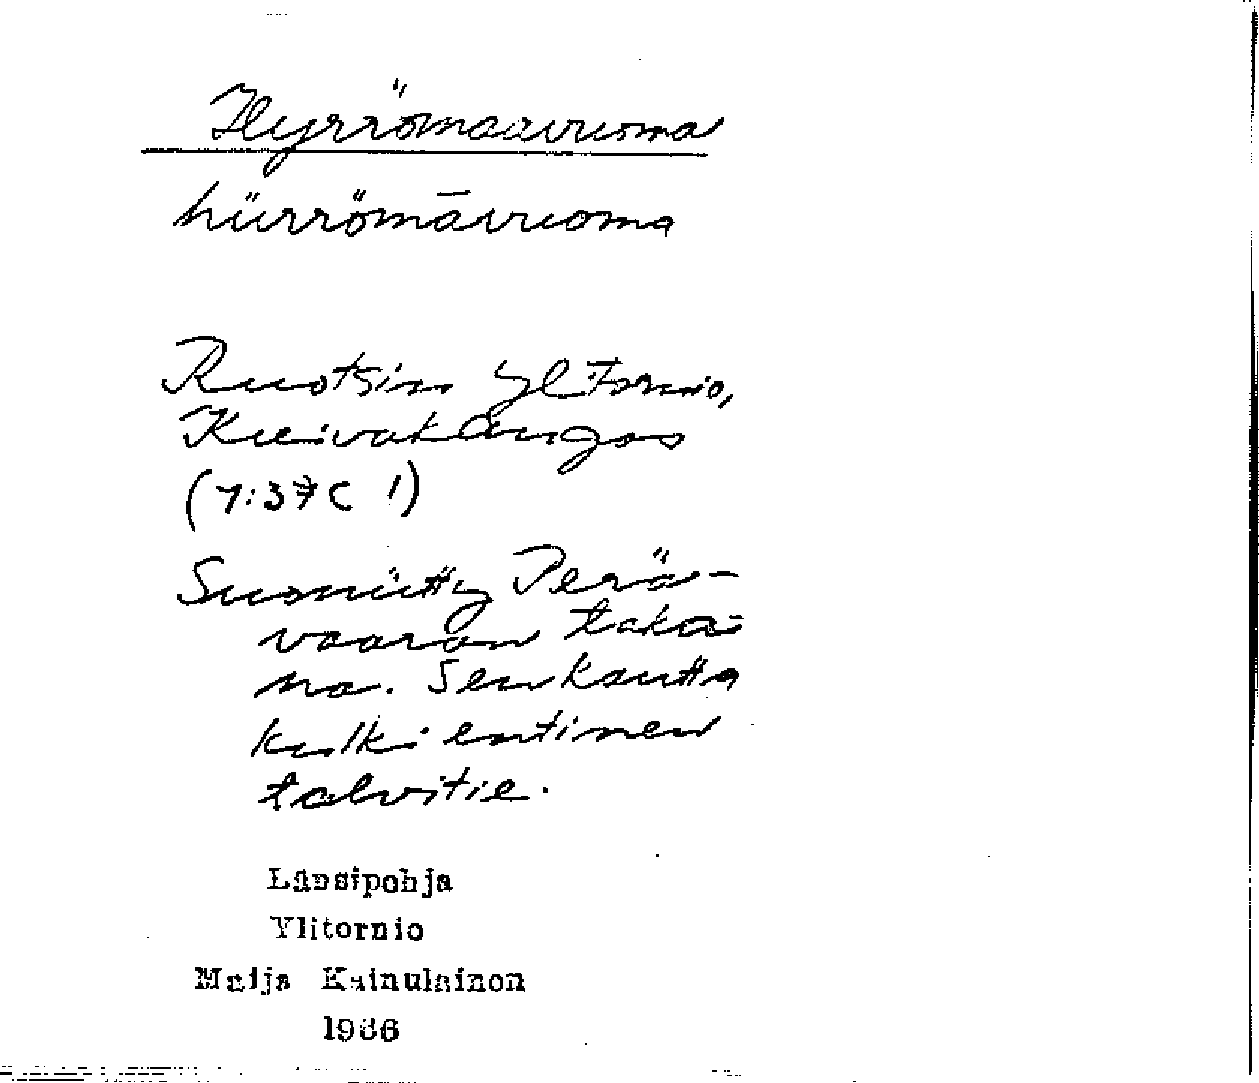 Hyrrömaavuoma
hürrömāvuoma
Ruotsin Ylitornio,
Kuivakangas
(7:37C 1)
Suoniitty Perä-
vaaran taka-
na. Sen kautta
kulki entinen
talvitie.
Länsipohja
Ylitornio
Maija Kainulainen
1966